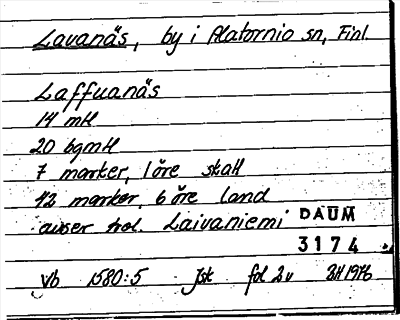 Lavanäs, by i Alatornio sn, Finl.
Laffuanäs
14 mtl
20 bgmtl
7 marker, 1 öre skatt
12 marker, 6 öre land
avser trol. Laivaniemi
DAUM
3174
Vb 1580:5 Jsk fol 2v BH 1976